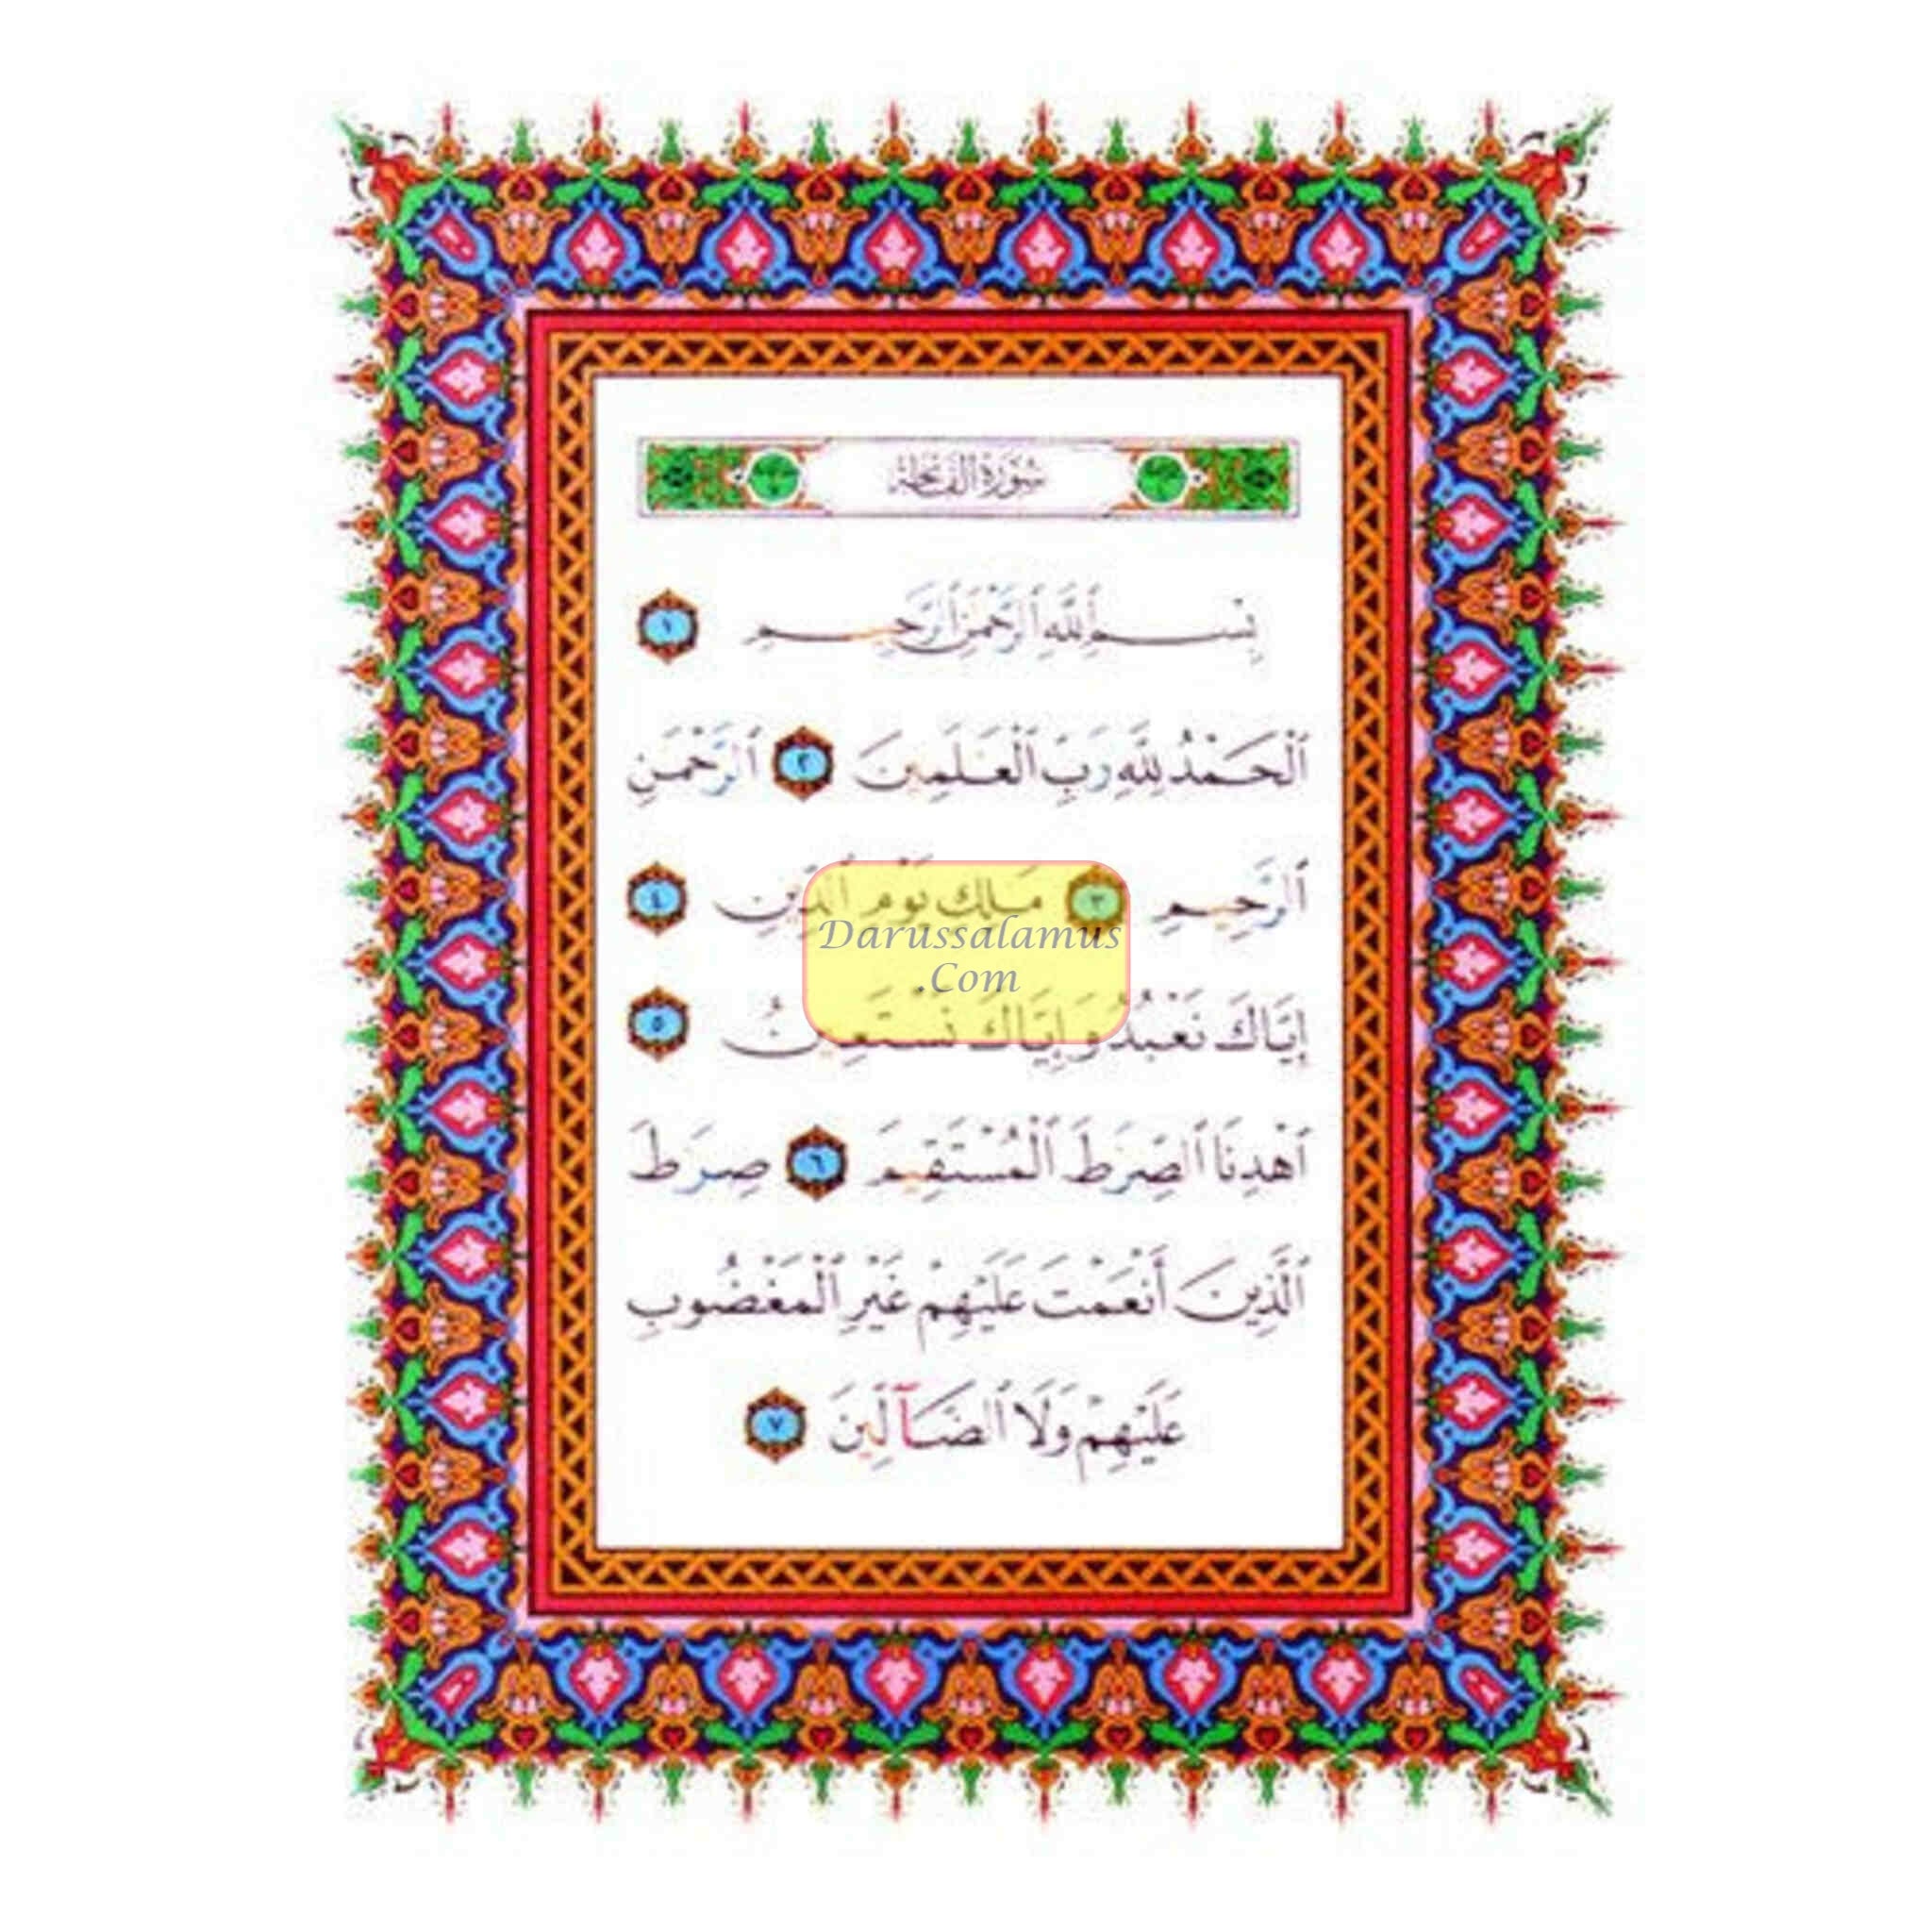 سُورَةُ الفَاتِحَةِ
بِسْمِ ٱللَّهِ ٱلرَّحْمَٰنِ ٱلرَّحِيمِ ١
ٱلْحَمْدُ لِلَّهِ رَبِّ ٱلْعَٰلَمِينَ ٢ ٱلرَّحْمَٰنِ
ٱلرَّحِيمِ ٣ مَٰلِكِ يَوْمِ ٱلدِّينِ ٤
Darussalamus
.Com
إِيَّاكَ نَعْبُدُ وَإِيَّاكَ نَسْتَعِينُ ٥
ٱهْدِنَا ٱلصِّرَٰطَ ٱلْمُسْتَقِيمَ ٦ صِرَٰطَ
ٱلَّذِينَ أَنْعَمْتَ عَلَيْهِمْ غَيْرِ ٱلْمَغْضُوبِ
عَلَيْهِمْ وَلَا ٱلضَّآلِّينَ ٧